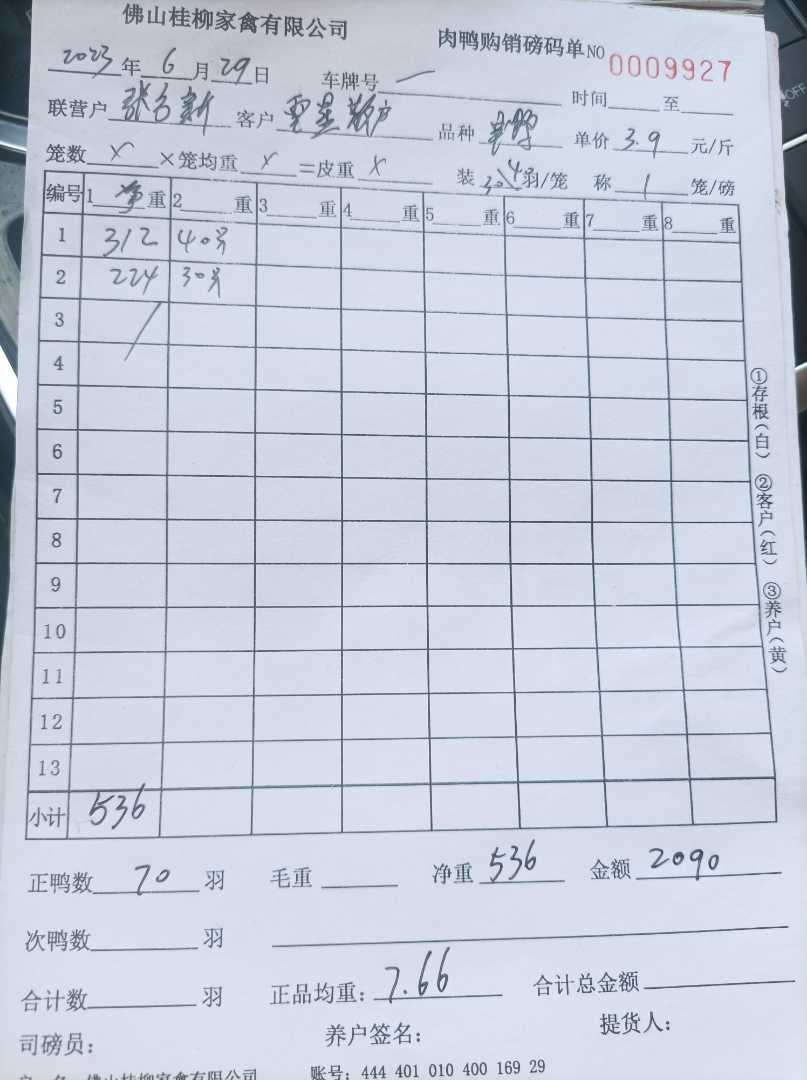 佛山桂柳家禽有限公司 肉鸭购销磅码单 NO 0009927
2023年6月29日 车牌号 一 时间 至
联营户 张 新 客户 星散户 品种 单价 3.9 元/斤
笼数 × ×笼均重 × =皮重 × 装 羽/笼 称 1 笼/磅
编号 1 净 重 2 重 3 重 4 重 5 重 6 重 7 重 8 重
1 312 40只
2 224 30只
3
4
5
6
7
8
9
10
11
12
13
小计 536
正鸭数 70 羽 毛重 净重 536 金额 2090
次鸭数 羽
合计数 羽 正品均重: 7.66 合计总金额
司磅员: 养户签名: 提货人:
佛山桂柳家禽有限公司 账号: 444 401 010 400 169 29
①存根(白) ②客户(红) ③养户(黄)